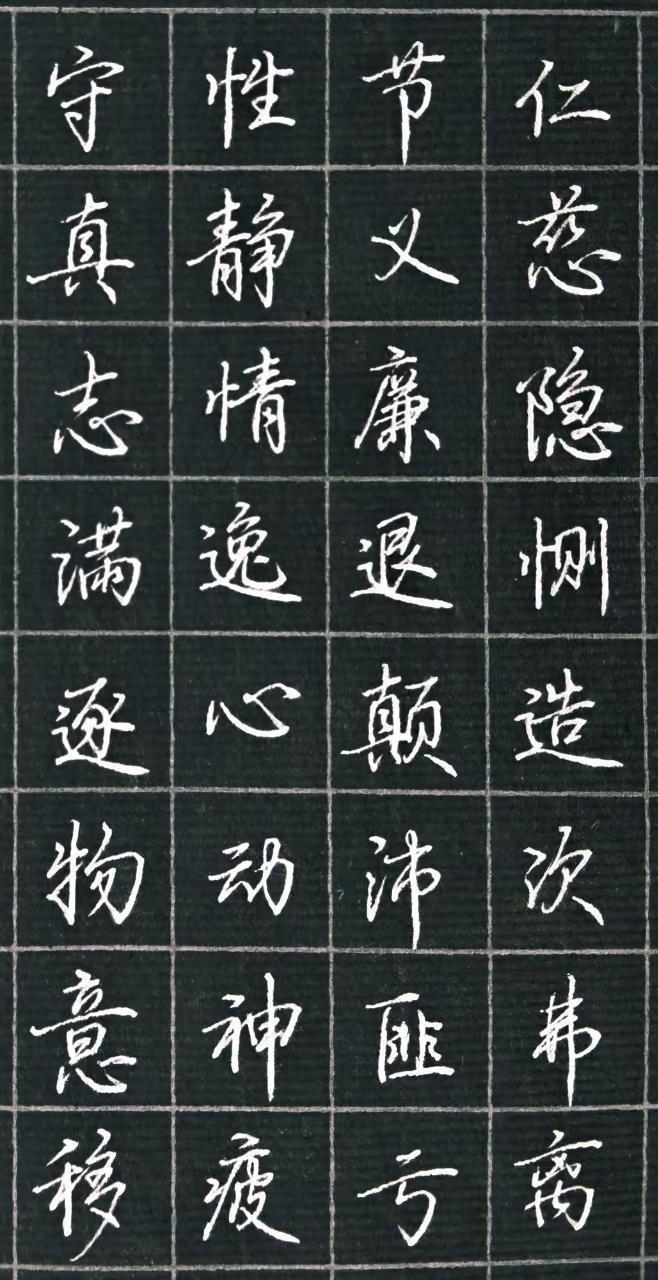 仁慈隐恻造次弗离
节义廉退颠沛匪亏
性静情逸心动神疲
守真志满逐物意移